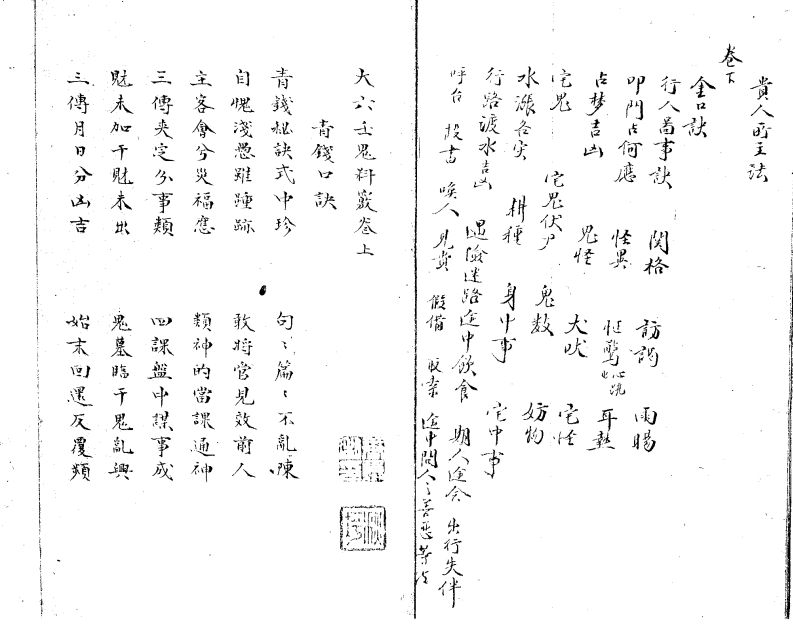 貴人所主法
卷下
金口訣
行人占事訣 関格 訪謁 雨暘
叩門占何應 怪異 怔驚 心跳 耳熱
占梦吉凶 鬼怪 犬吠 宅怪
宅鬼 宅鬼伏尸 鬼数 妨物
水漲各灾 耕種 身中事 宅中事
行路渡水吉凶 遇險迷路途中飲食 期人途会 出行失伴
呼召 投書 喚人 見貴 假借 取索 途中問人之善惡等占
大六壬鬼料竅卷上
青錢口訣
青錢秘訣式中珍 句〻篇〻不亂陳
自愧淺愚雖踵跡 敢將官見效前人
主客會兮災福應 類神的當課通神
三傳夾定分事類 四課盤中謀事成
財未加干財未出 鬼墓臨干鬼亂興
三傳月日分凶吉 始末回還反覆頻